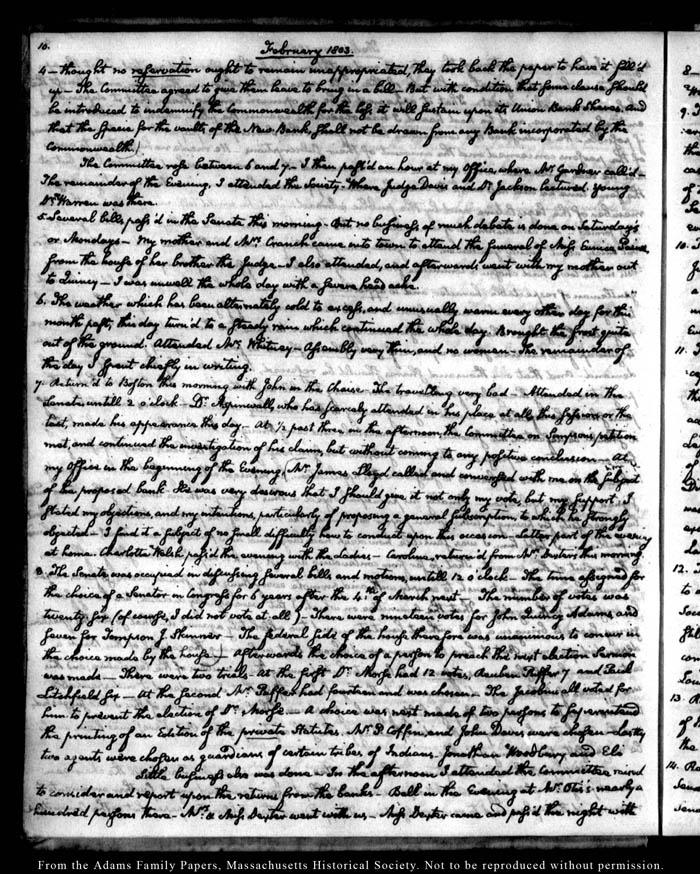 10.
February 1803.
4 - thought no reservation ought to remain unappropriated, they took back the paper to have it fill'd
up - The Committee agreed to give them leave to bring in a bill - But with condition that some clause should
be introduced to indemnify the Commonwealth for the loss it will sustain upon its Union Bank Shares. And
that the specie for the vaults of the New Bank, shall not be drawn from any Bank incorporated by the
Commonwealth.
The Committee rose between 6 and 7 - I then pass'd an hour at my Office, where Mr. Gardner call'd -
The remainder of the Evening, I attended the Society - Where Judge Davis and Dr. Jackson lectured. Young
Dr. Warren was there.
5. Several bills pass'd in the Senate this morning - But no business of much debate is done on Saturdays
or Mondays - My mother and Mrs. Cranch came into town to attend the funeral of Miss Eunice Paine
from the house of her brother the Judge - I also attended, and afterwards went with my mother out
to Quincy - I was unwell the whole day with a severe head ache.
6. The weather which has been alternately cold to excess, and unusually warm every other day for this
month past, this day turn'd to a steady rain which continued the whole day. Brought the frost quite
out of the ground. Attended Mr. Whitney - Assembly very thin, and no women - The remainder of
the day I spent chiefly in writing.
7. Return'd to Boston this morning with John in the Chaise. The travelling very bad - Attended in the
Senate untill 2 o'clock - Dr. who has scarcely attended in his place at all this session or the
last, made his appearance this day - At 1/2 past three in the afternoon, the Committee on Simpson's petition
met, and continued the investigation of his claim, but without coming to any positive conclusion - At
my Office in the beginning of the Evening, Mr. James Lloyd called and conversed with me on the subject
of the proposed bank - He was very desirous that I should give it not only my vote, but my support. I
stated my objections, and my intentions, particularly of proposing a general subscription, to which he strongly
objected - I find it a subject of no small difficulty how to conduct upon this occasion - Latter part of the evening
at home. Charlotte Welsh pass'd the evening with the ladies - Caroline return'd from Mr. Dexter's this morning
8. The Senate was occupied in discussing several bills and motions, untill 12 o'clock - The time assigned for
the choice of a Senator in Congress for 6 years after the 4th. of March next - The number of votes was
twenty-six (of course, I did not vote at all) - There were nineteen votes for John Quincy Adams, and
seven for Tompson J. Skinner - The federal side of the house therefore was unanimous to concur in
the choice made by the house - Afterwards the choice of a person to preach the next election Sermon
was made - There were two trials - At the first Dr. Morse had 12 votes, Reuben Puffer 7 and Paul
Litchfield six - At the second Mr. Puffer had fourteen and was chosen - The Jacobins all voted for
him to prevent the election of Dr. Morse - A choice was next made of two persons to superintend
the printing of an Edition of the private Statutes. Mr. P. Coffin, and John Davis were chosen - Lastly
two agents were chosen as guardians of certain tribes of Indians. Jonathan Woodbury and Eli
Little business else was done - In the afternoon I attended the Committee
to consider and report upon the returns from the banks - Ball in the Evening at Mr. Otis's nearly a
hundred persons there - Mrs. & Miss Dexter went with us - Miss Dexter came and pass'd the night with
From the Adams Family Papers, Massachusetts Historical Society. Not to be reproduced without permission.